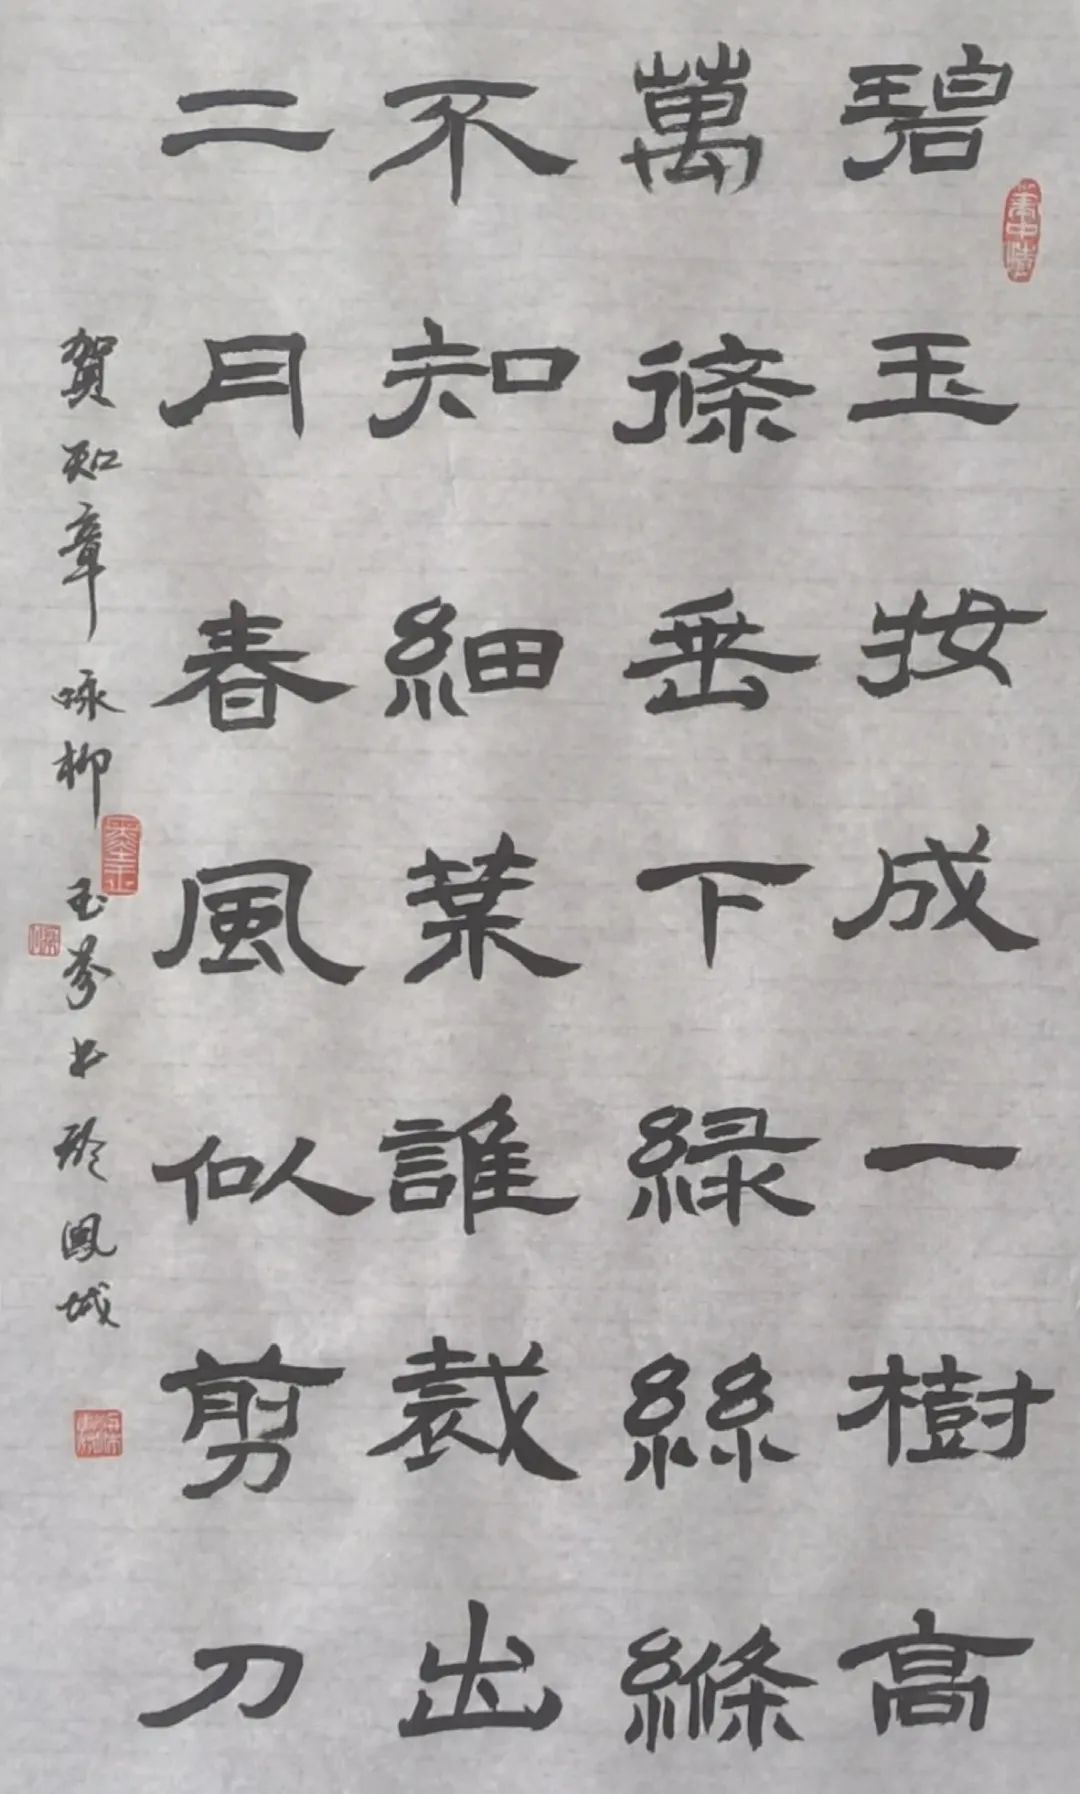 碧玉妝成一樹高
萬條垂下緑絲縧
不知細葉誰裁出
二月春風似剪刀
賀知章咏柳 玉芬书於鳳城